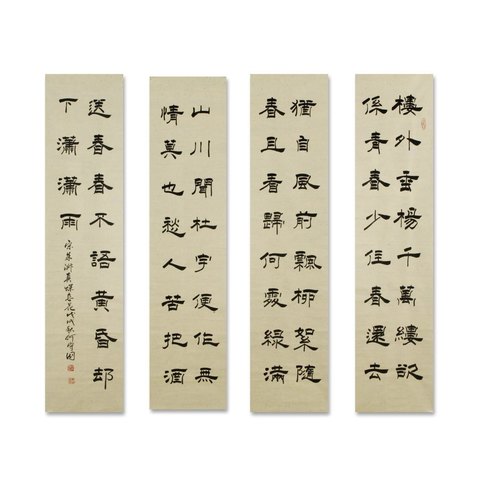 樓外垂楊千萬縷欲
係青春少住春還去
猶自風前飄柳絮隨
春且看歸何處綠滿
山川聞杜宇便作無
情莫也愁人苦把酒
送春春不語黃昏却
下瀟瀟雨
宋朱淑真蝶恋花戊戌秋何國